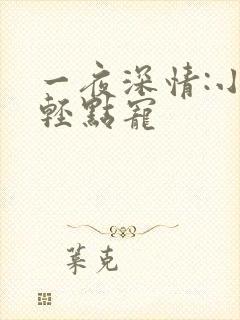 一夜深情:小
輕點寵
克